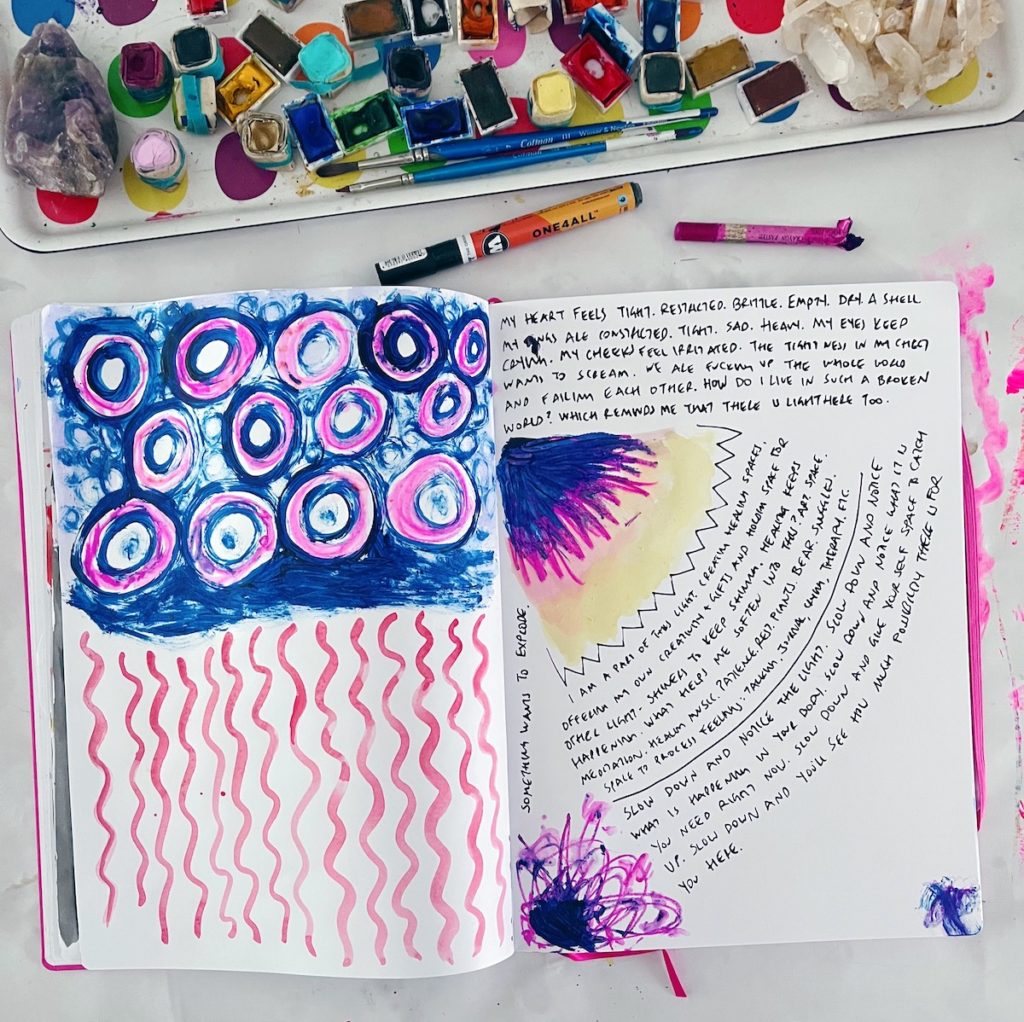 Cotman 111 Winsor & New
Cotman
ONE4ALL™
MY HEART FEELS TIGHT. RESTRICTED. BRITTLE. EMPTY. DRY. A SHELL
MY LUNGS ARE CONSTRICTED. TIGHT. SAD. HEAVY. MY EYES KEEP
CRYING. MY CHEEKS FEEL IRRITATED. THE TIGHTNESS IN MY CHEST
WANTS TO SCREAM. WE ARE FUCKING UP THE WHOLE WORLD
AND FAILING EACH OTHER. HOW DO I LIVE IN SUCH A BROKEN
WORLD? WHICH REMINDS ME THAT THERE IS LIGHT HERE TOO.
I AM A PART OF THIS LIGHT. CREATING HEALING SPACES.
OFFERING MY OWN CREATIVITY + GIFTS AND HOLDING SPACE FOR
OTHER LIGHT-SHINERS TO KEEP SHINING. HEALING KEEPS
HAPPENING. WHAT HELPS ME SOFTEN INTO THIS? ART. SPACE.
MEDITATION. HEALING MUSIC. PATIENCE. REST. PLANTS. BEAR. SNUGGLES
SPACE TO PROCESS FEELINGS. TALKING. JOURNAL, CRYING, THERAPY, ETC.
SLOW DOWN AND NOTICE THE LIGHT. SLOW DOWN AND NOTICE
WHAT IS HAPPENING IN YOUR BODY. SLOW DOWN AND NOTICE WHAT IT IS
YOU NEED RIGHT NOW. SLOW DOWN AND GIVE YOUR SELF SPACE TO CATCH
UP. SLOW DOWN AND YOU'LL SEE HOW MUCH POSSIBILITY THERE IS FOR
YOU HERE.
SOMETHING WANTS TO EXPLODE.